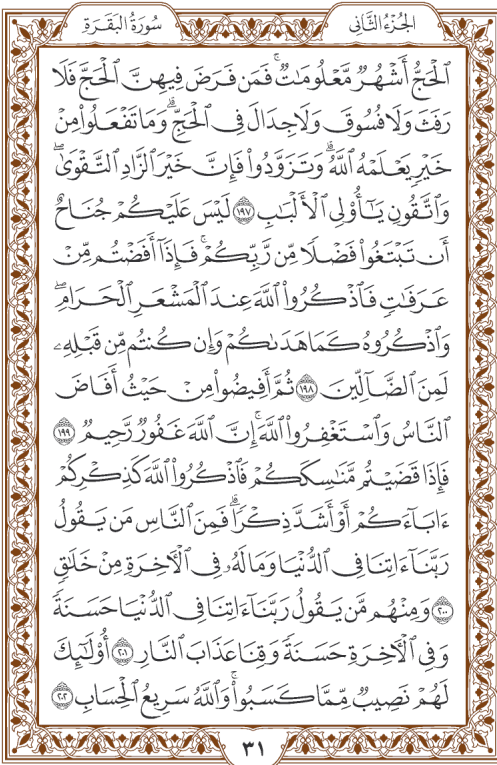 سُورَةُ البَقَرَةِ الجُزْءُ الثَّانِي
ٱلْحَجُّ أَشْهُرٌ مَّعْلُومَٰتٌ ۚ فَمَن فَرَضَ فِيهِنَّ ٱلْحَجَّ فَلَا
رَفَثَ وَلَا فُسُوقَ وَلَا جِدَالَ فِى ٱلْحَجِّ ۗ وَمَا تَفْعَلُوا۟ مِنْ
خَيْرٍ يَعْلَمْهُ ٱللَّهُ ۗ وَتَزَوَّدُوا۟ فَإِنَّ خَيْرَ ٱلزَّادِ ٱلتَّقْوَىٰ ۖ
وَٱتَّقُونِ يَٰٓأُو۟لِى ٱلْأَلْبَٰبِ ١٩٧ لَيْسَ عَلَيْكُمْ جُنَاحٌ
أَن تَبْتَغُوا۟ فَضْلًا مِّن رَّبِّكُمْ ۚ فَإِذَآ أَفَضْتُم مِّنْ
عَرَفَٰتٍ فَٱذْكُرُوا۟ ٱللَّهَ عِندَ ٱلْمَشْعَرِ ٱلْحَرَامِ ۖ
وَٱذْكُرُوهُ كَمَا هَدَىٰكُمْ وَإِن كُنتُم مِّن قَبْلِهِۦ
لَمِنَ ٱلضَّآلِّينَ ١٩٨ ثُمَّ أَفِيضُوا۟ مِنْ حَيْثُ أَفَاضَ
ٱلنَّاسُ وَٱسْتَغْفِرُوا۟ ٱللَّهَ ۚ إِنَّ ٱللَّهَ غَفُورٌ رَّحِيمٌ ١٩٩
فَإِذَا قَضَيْتُم مَّنَٰسِكَكُمْ فَٱذْكُرُوا۟ ٱللَّهَ كَذِكْرِكُمْ
ءَابَآءَكُمْ أَوْ أَشَدَّ ذِكْرًا ۗ فَمِنَ ٱلنَّاسِ مَن يَقُولُ
رَبَّنَآ ءَاتِنَا فِى ٱلدُّنْيَا وَمَا لَهُۥ فِى ٱلْأَخِرَةِ مِنْ خَلَٰقٍ
٢٠٠ وَمِنْهُم مَّن يَقُولُ رَبَّنَآ ءَاتِنَا فِى ٱلدُّنْيَا حَسَنَةً
وَفِى ٱلْأَخِرَةِ حَسَنَةً وَقِنَا عَذَابَ ٱلنَّارِ ٢٠١ أُو۟لَٰٓئِكَ
لَهُمْ نَصِيبٌ مِّمَّا كَسَبُوا۟ ۚ وَٱللَّهُ سَرِيعُ ٱلْحِسَابِ ٢٠٢
٣١